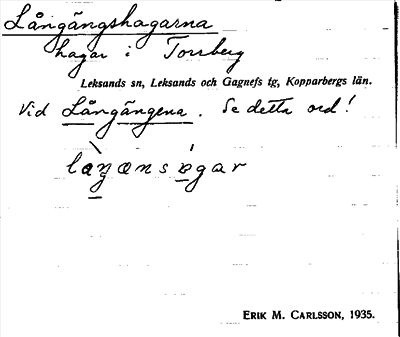 Långängshagarna
hagar i Torrberg
Leksands sn, Leksands och Gagnefs tg, Kopparbergs län.
Vid Långängena. Se detta ord!
ERIK M. CARLSSON, 1935.